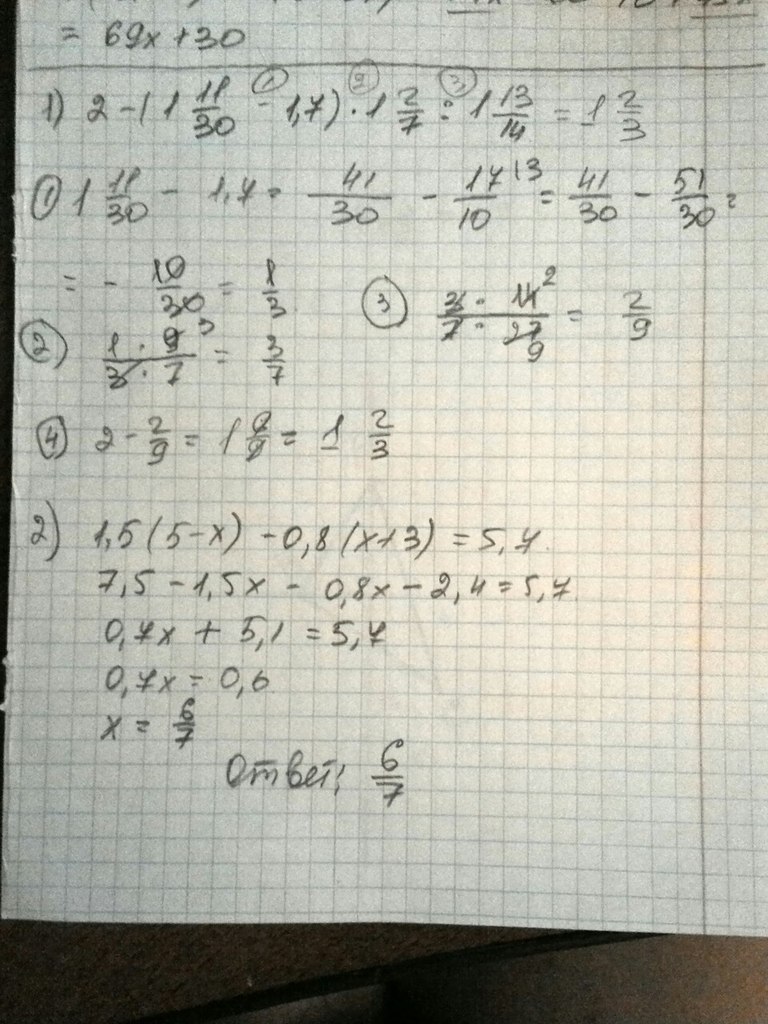 = 69x+30
1) 2-(1 11/30 - 1,7) · 1 2/7 : 1 13/14 = 1 2/3
① 1 11/30 - 1,7 = 41/30 - 17/10 |3 = 41/30 - 51/30 =
= - 10/30 = 1/3 ③ 3 · 14 2/7 · 27 9 = 2/9
② 1 · 9 3/3 · 7 = 3/7
④ 2 - 2/9 = 1 6/9 = 1 2/3
2) 1,5(5-x) - 0,8(x+3) = 5,7.
7,5 - 1,5x - 0,8x - 2,4 = 5,7.
0,7x + 5,1 = 5,7
0,7x = 0,6
x = 6/7
Ответ: 6/7